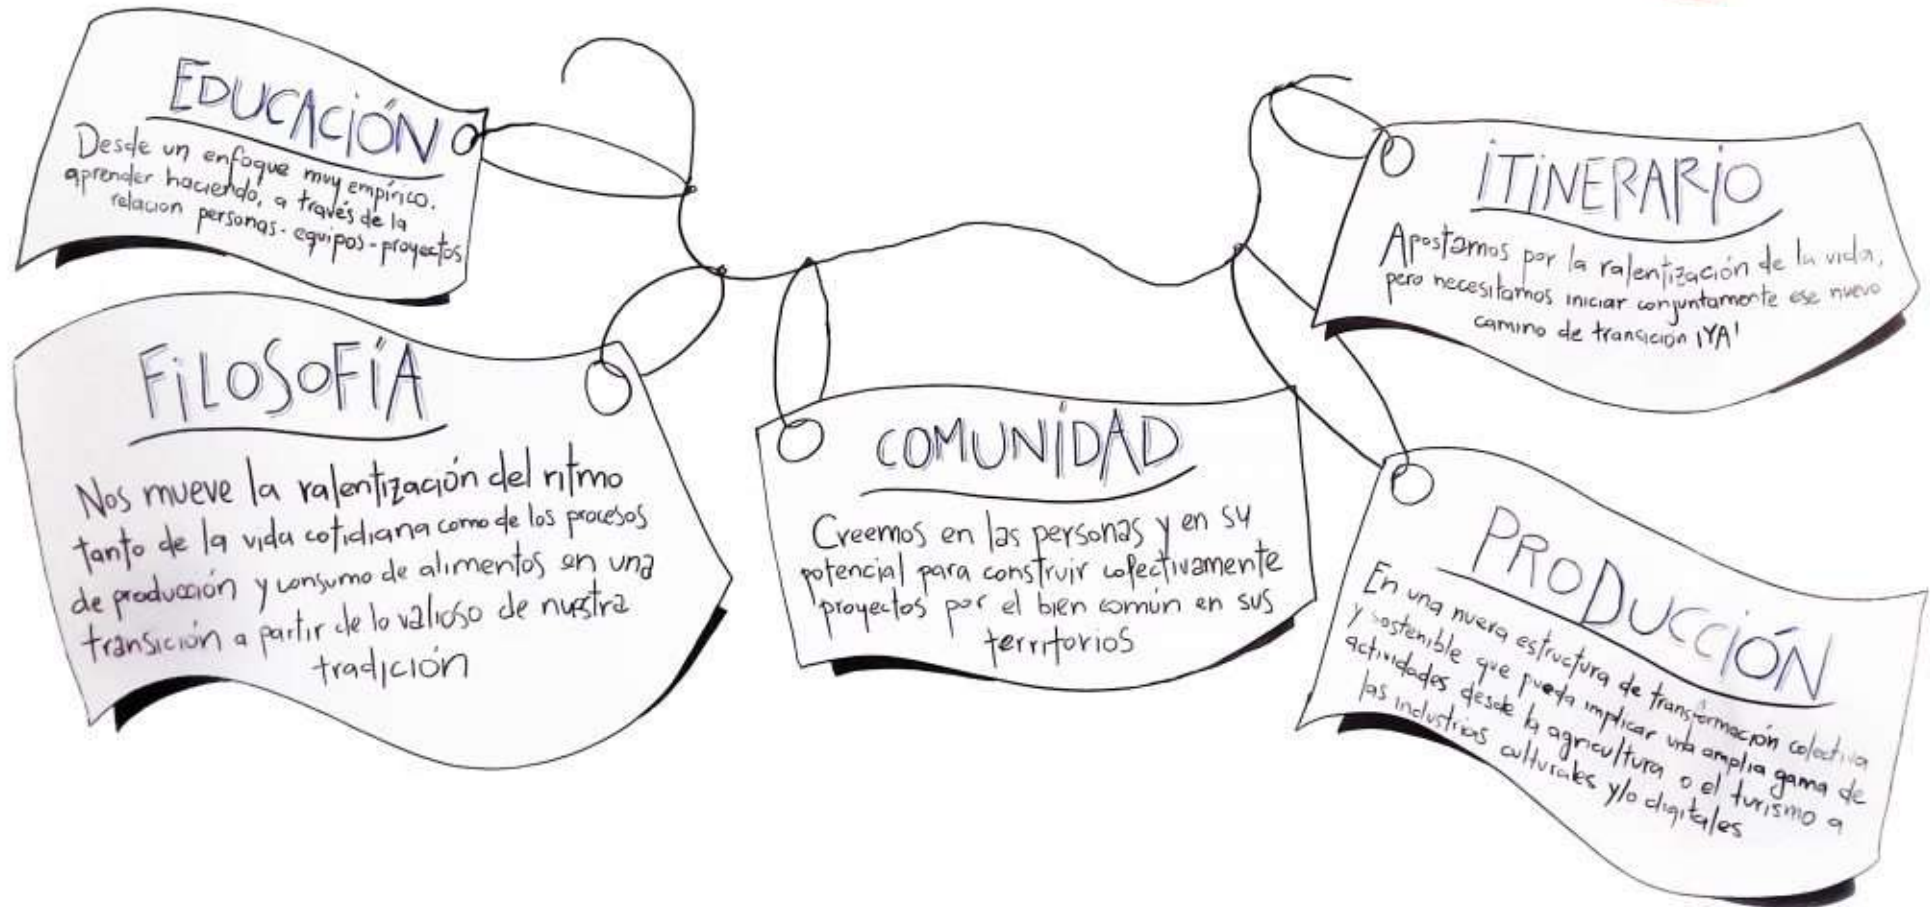 EDUCACIÓN
Desde un enfoque muy empírico.
aprender haciendo, a través de la
relacion personas - equipos - proyectos
FILOSOFÍA
Nos mueve la ralentización del ritmo
tanto de la vida cotidiana como de los procesos
de producción y consumo de alimentos en una
transición a partir de lo valioso de nuestra
tradición
COMUNIDAD
Creemos en las personas y en su
potencial para construir colectivamente
proyectos por el bien común en sus
territorios
ITINERARIO
Apostamos por la ralentización de la vida,
pero necesitamos iniciar conjuntamente ese nuevo
camino de transición ¡YA!
PRODUCCIÓN
En una nueva estructura de transformación colectiva
y sostenible que pueda implicar una amplia gama de
actividades desde la agricultura o el turismo a
las industrias culturales y/o digitales